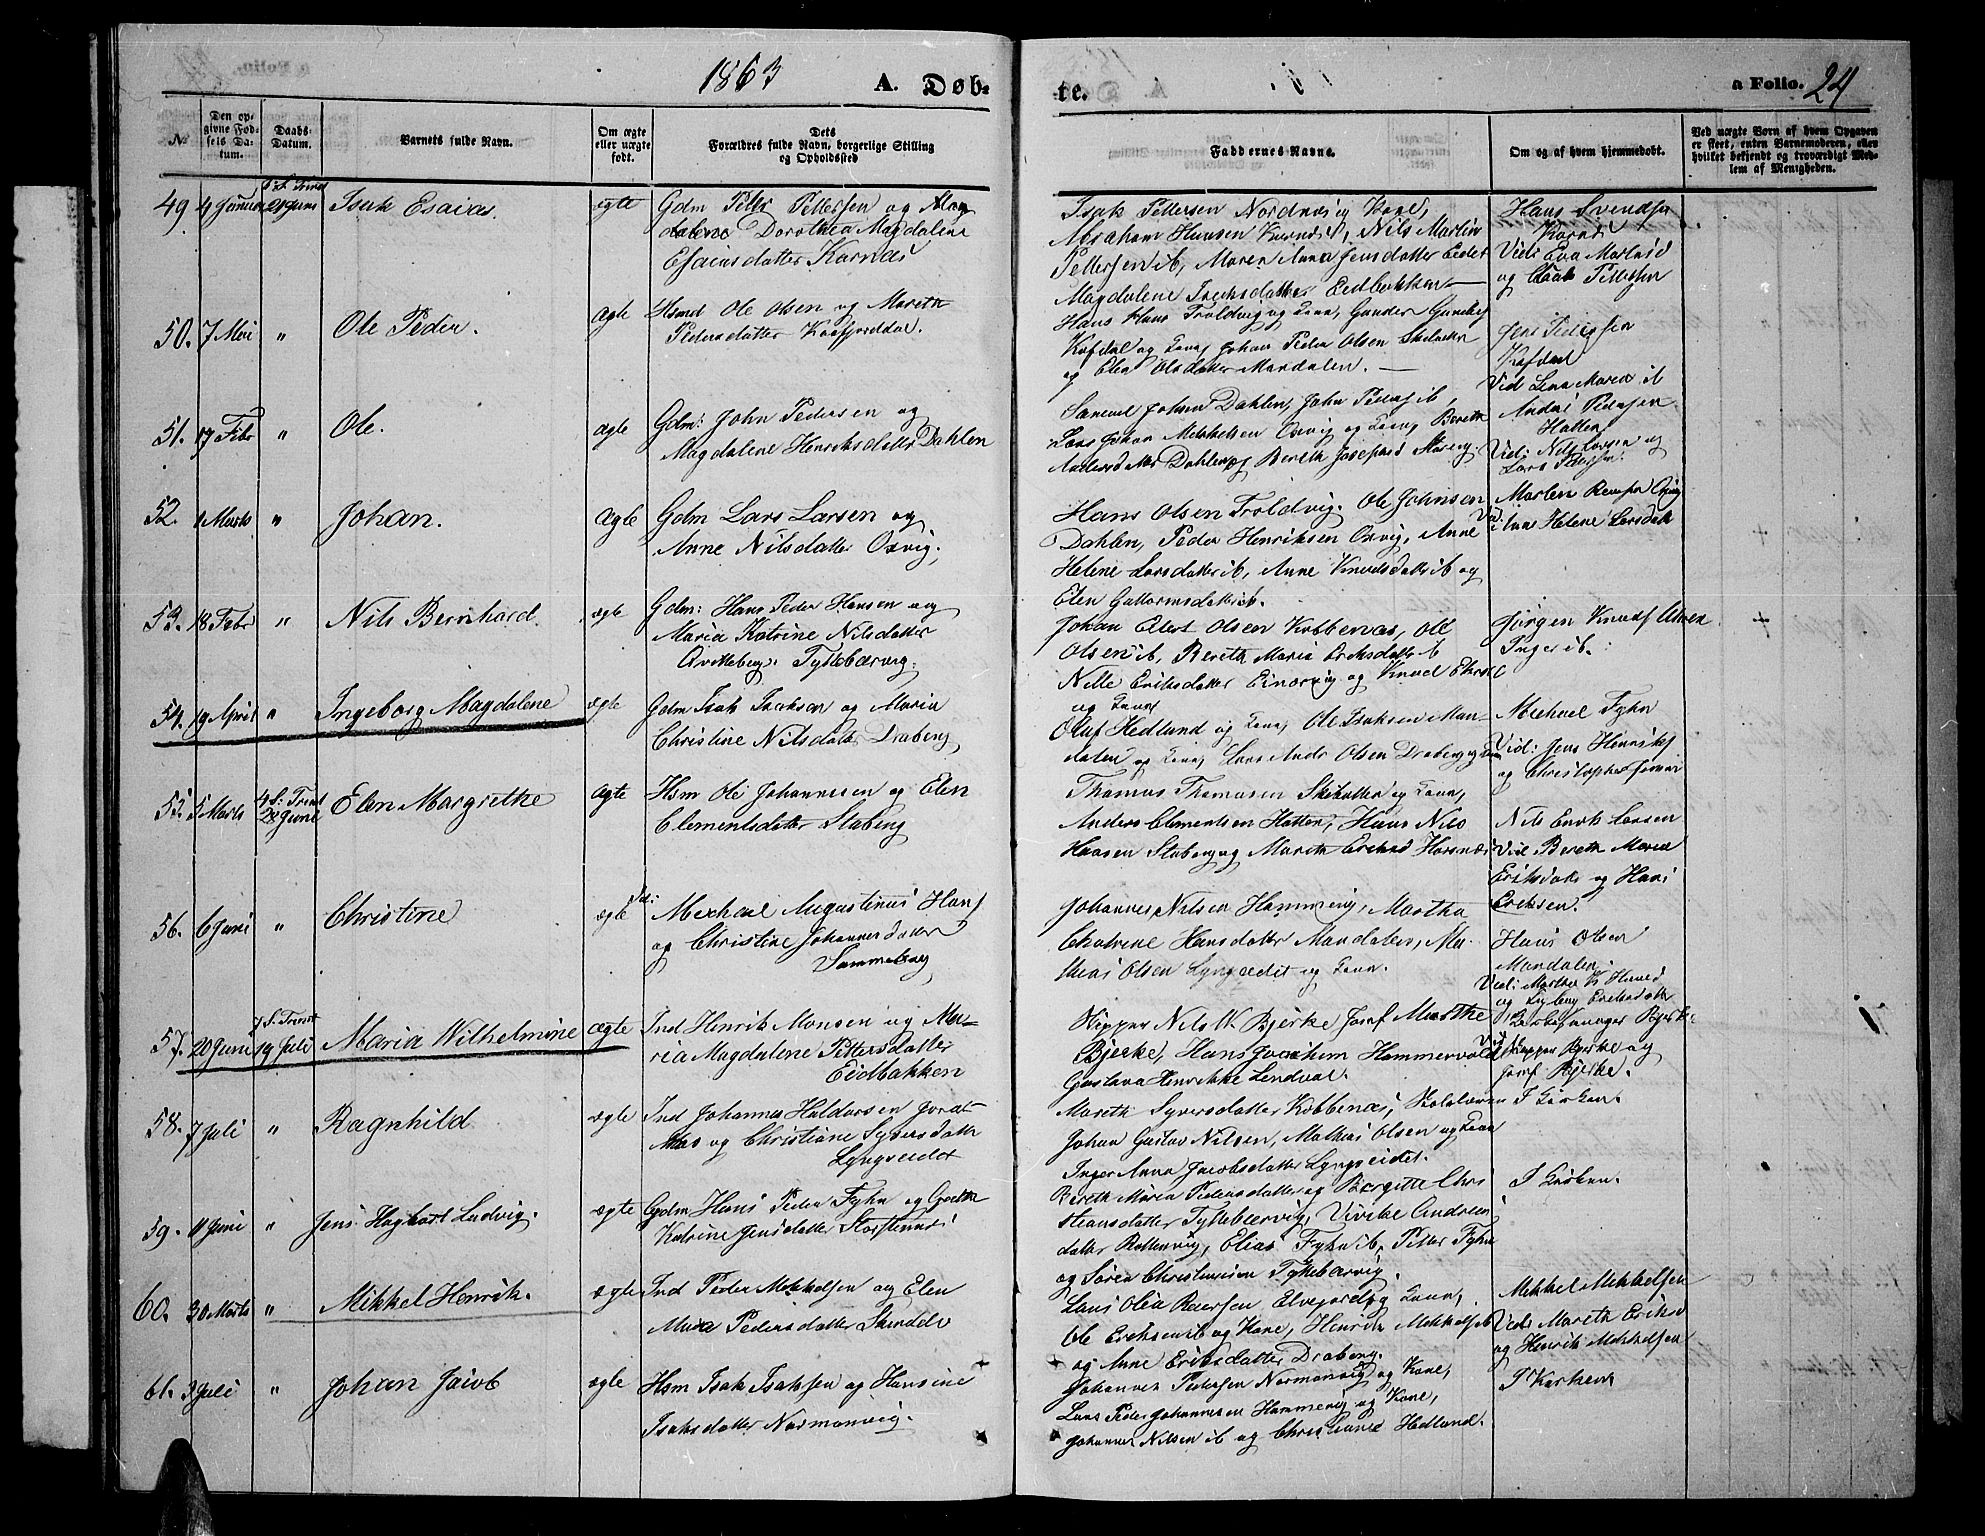 1863
A. Døb-
te.
a Folio. 24
№
Den op-
givne Fød-
sels Da-
tum.
Daabs-
Datum.
Barnets fulde Navn.
Om ægte
eller uægte
født.
Dets
Forældres fulde Navn, borgerlige Stilling
og Opholdssted
Faddernes Navne.
Om og af hvem hjemmedøbt.
Ved uægte Børn af hvem Opgaven
er skeet, enten Barnemoderen, eller
hvilket bekjendt og troværdigt Med-
lem af Menigheden.
49
21 Juni
Isak Esaias.
ægte
Gdm Peter Pettersen og Mag
dalene Dorothea Magdalene
Esaiasdatter Karnæs
Isak Pettersen Nordnæs og Kone,
Abraham Hansen Karnæs, Nils Martin
Pettersen ib, Maren Anna Jensdatter Eidet
Magdalene Eriksdatter Eidbakken
Hans Svendsen
Karnæs
50. 7 Mai
"
Ole Peder.
ægte
Hsmd Ole Olsen og Mareth
Pedersdatter Kaafjorddal.
Hans Hans Troldvig og Kona, Gunder
og Kona, Johan Peder Olsen Skibotten
og Elen Olsdatter Mandalen.
Vid Lena Maria ib
51. 17 Febr
"
Ole.
ægte
Gdm: John Pedersen og
Magdalene Henriksdatter Dahlen
Samuel Johnsen Dahlen, John Peders ib,
Lars Johan Mikkelsen Oxvig og Kona, Bereth
Andersdatter Dahlen og Bereth Josephsd
Anders Pedersen
Hatten
Vid: Nils Larsen og
Lars Pedersen.
52. 1 Marts
"
Johan.
ægte
Gdm Lars Larsen og
Anne Nilsdatter Oxvig.
Hans Olsen Troldvig. Ole Johnsen
Dahlen, Peder Henriksen Oxvig, Anne
Helene Larsdatter ib, Anne Knudsdatter ib og
Elen Guttormsdatter ib.
Vid: Anne Helene Larsdatt
53. 18 Febr
"
Nils Bernhard.
ægte
Gdm: Hans Peder Hansen og
Maria Katrine Nilsdatter
Tyttebærvig.
Johan Elert Olsen Kobbenæs, Ole
Olsen ib, Bereth Maria Eriksdatter ib
Nille Eriksdatter og Knud
og Kona
Jørgen
Inger ib.
54. 19 April
"
Ingeborg Magdalene
ægte
Gdm Isak Isaksen og Maria
Christine Nilsdatter Draberg
Oluf Hedlund og Kona, Ole Isaksen Man-
dalen og Kona, Lars Andr Olsen Draberg og
Michael Fyhn
Vid: Jens
og Christopher
55. 5 Marts
4 S: Trinit
28 Juni
Elen Margrethe
ægte
Hsm Ole Johannesen og Elen
Clementsdatter Staberg
Thomas Thomasen Skibotten og Kona,
Anders Clementsen Hatten, Hans Nils
Hansen Staberg og Mareth
Nils Erik Larsen
Vid Bereth Maria
Eriksdatt og Hans
Eriksen.
56. 6 Juni
"
Christine
ægte
Michael Augustinus Hans
og Christine Johannesdatter
Johannes Nilsen Hammervig, Martha
Chatrine Hansdatter Mandalen, Ma-
thias Olsen Lyngseidet og Kona.
Hans Olsen
Mandalen
57. 20 Juni
7 S. Trinit
19 Juli
Maria Wilhelmine
ægte
Ind Henrik Monsen og Ma-
ria Magdalene Pettersdatter
Eidbakken
Skipper Nils W. Bjerke Jomf Marthe
Bjerke, Hans Joachim Hammervold
Gustava Henrikke Lendval.
Skipper Bjerke og
Jomf Bjerke.
58. 7 Juli
"
Ragnhild
ægte
Ind Johannes Haldorsen
og Christiane Syversdatter
Lyngseidet
Mareth Syversdatter Kobbenæs,
Johan Gustav Nilsen, Mathias Olsen og Kona
Inger Anna Jacobsdatter Lyngseidet.
I Kirken.
59. 11 Juni
"
Jens Hagbart Ludvig.
ægte
Gdm Hans Peder Fyhn og Grethe
Katrine Jensdatter Storstennæs
Bereth Maria Pedersdatter og Bergitte Chri
stiansdatter Tyttebærvig, Vivike Andrea
datter Rottenvig, Elias Fyhn ib, Petter Fyhn
og Søren Christiansen Tyttebærvig.
I Kirken.
60. 30 Marts
"
Mikkel Henrik.
ægte
Ind Peder Mikkelsen og Elen
Maria Pedersdatter Skindelv
Lars Olia Reiersen Elvejord og Kona,
Ole Eriksen ib og Kone, Henrik Mikkelsen ib
og Anne Eriksdatter Draberg.
Mikkel Mikkelsen
Vid: Mareth Eriksd
og Henrik Mikkelsen
61. 3 Juli
"
Johan Jacob
ægte
Hsm Isak Isaksen og Hansine
Isaksdatter Normanvig.
Johannes Pedersen Normanvig og Kone,
Lars Peder Johannesen Hammervig og Kone,
Johannes Nilsen ib og Christiane Hedlund.
I Kirken